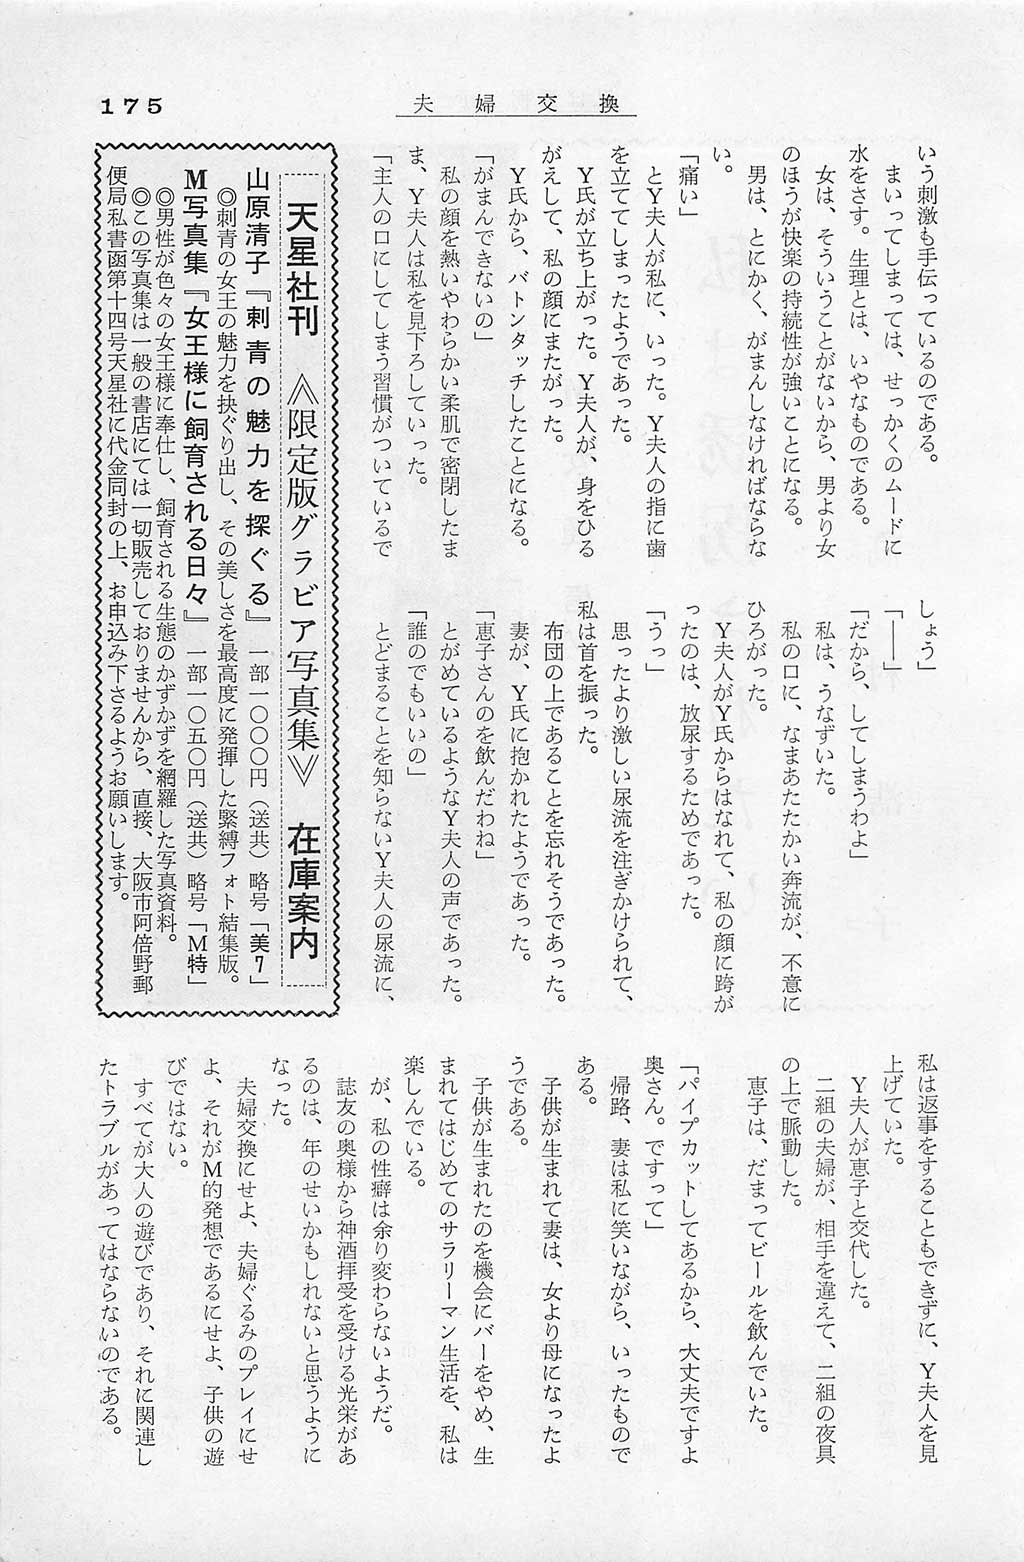 175
夫婦交換
いう刺激も手伝っているのである。
まいってしまっては、せっかくのムードに
水をさす。生理とは、いやなものである。
女は、そういうことがないから、男より女
のほうが快楽の持続性が強いことになる。
男は、とにかく、がまんしなければならな
い。
「痛い」
とＹ夫人が私に、いった。Ｙ夫人の指に歯
を立ててしまったようであった。
Ｙ氏が立ち上がった。Ｙ夫人が、身をひる
がえして、私の顔にまたがった。
Ｙ氏から、バトンタッチしたことになる。
「がまんできないの」
私の顔を熱いやわらかい柔肌で密閉したま
ま、Ｙ夫人は私を見下ろしていった。
「主人の口にしてしまう習慣がついているで
しょう」
「――」
「だから、してしまうわよ」
私は、うなずいた。
私の口に、なまあたたかい奔流が、不意に
ひろがった。
Ｙ夫人がＹ氏からはなれて、私の顔に跨が
ったのは、放尿するためであった。
「うっ」
思ったより激しい尿流を注ぎかけられて、
私は首を振った。
布団の上であることを忘れそうであった。
妻が、Ｙ氏に抱かれたようであった。
「恵子さんのを飲んだわね」
とがめているようなＹ夫人の声であった。
「誰のでもいいの」
とどまることを知らないＹ夫人の尿流に、
私は返事をすることもできずに、Ｙ夫人を見
上げていた。
Ｙ夫人が恵子と交代した。
二組の夫婦が、相手を違えて、二組の夜具
の上で脈動した。
恵子は、だまってビールを飲んでいた。
「パイプカットしてあるから、大丈夫ですよ
奥さん。ですって」
帰路、妻は私に笑いながら、いったもので
ある。
子供が生まれて妻は、女より母になったよ
うである。
子供が生まれたのを機会にバーをやめ、生
まれてはじめてのサラリーマン生活を、私は
楽しんでいる。
が、私の性癖は余り変わらないようだ。
誌友の奥様から神酒拝受を受ける光栄があ
るのは、年のせいかもしれないと思うように
なった。
夫婦交換にせよ、夫婦ぐるみのプレイにせ
よ、それがＭ的発想であるにせよ、子供の遊
びではない。
すべてが大人の遊びであり、それに関連し
たトラブルがあってはならないのである。
天星社刊 《限定版グラビア写真集》 在庫案内
山原清子『刺青の魅力を探ぐる』 一部一〇〇〇円（送共）略号「美７」
◎刺青の女王の魅力を抉ぐり出し、その美しさを最高度に発揮した緊縛フォト結集版。
Ｍ写真集『女王様に飼育される日々』 一部一〇五〇円（送共）略号「Ｍ特」
◎男性が色々の女王様に奉仕し、飼育される生態のかずかずを網羅した写真資料。
◎この写真集は一般の書店にては一切販売しておりませんから、直接、大阪市阿倍野郵
便局私書函第十四号天星社に代金同封の上、お申込み下さるようお願いします。